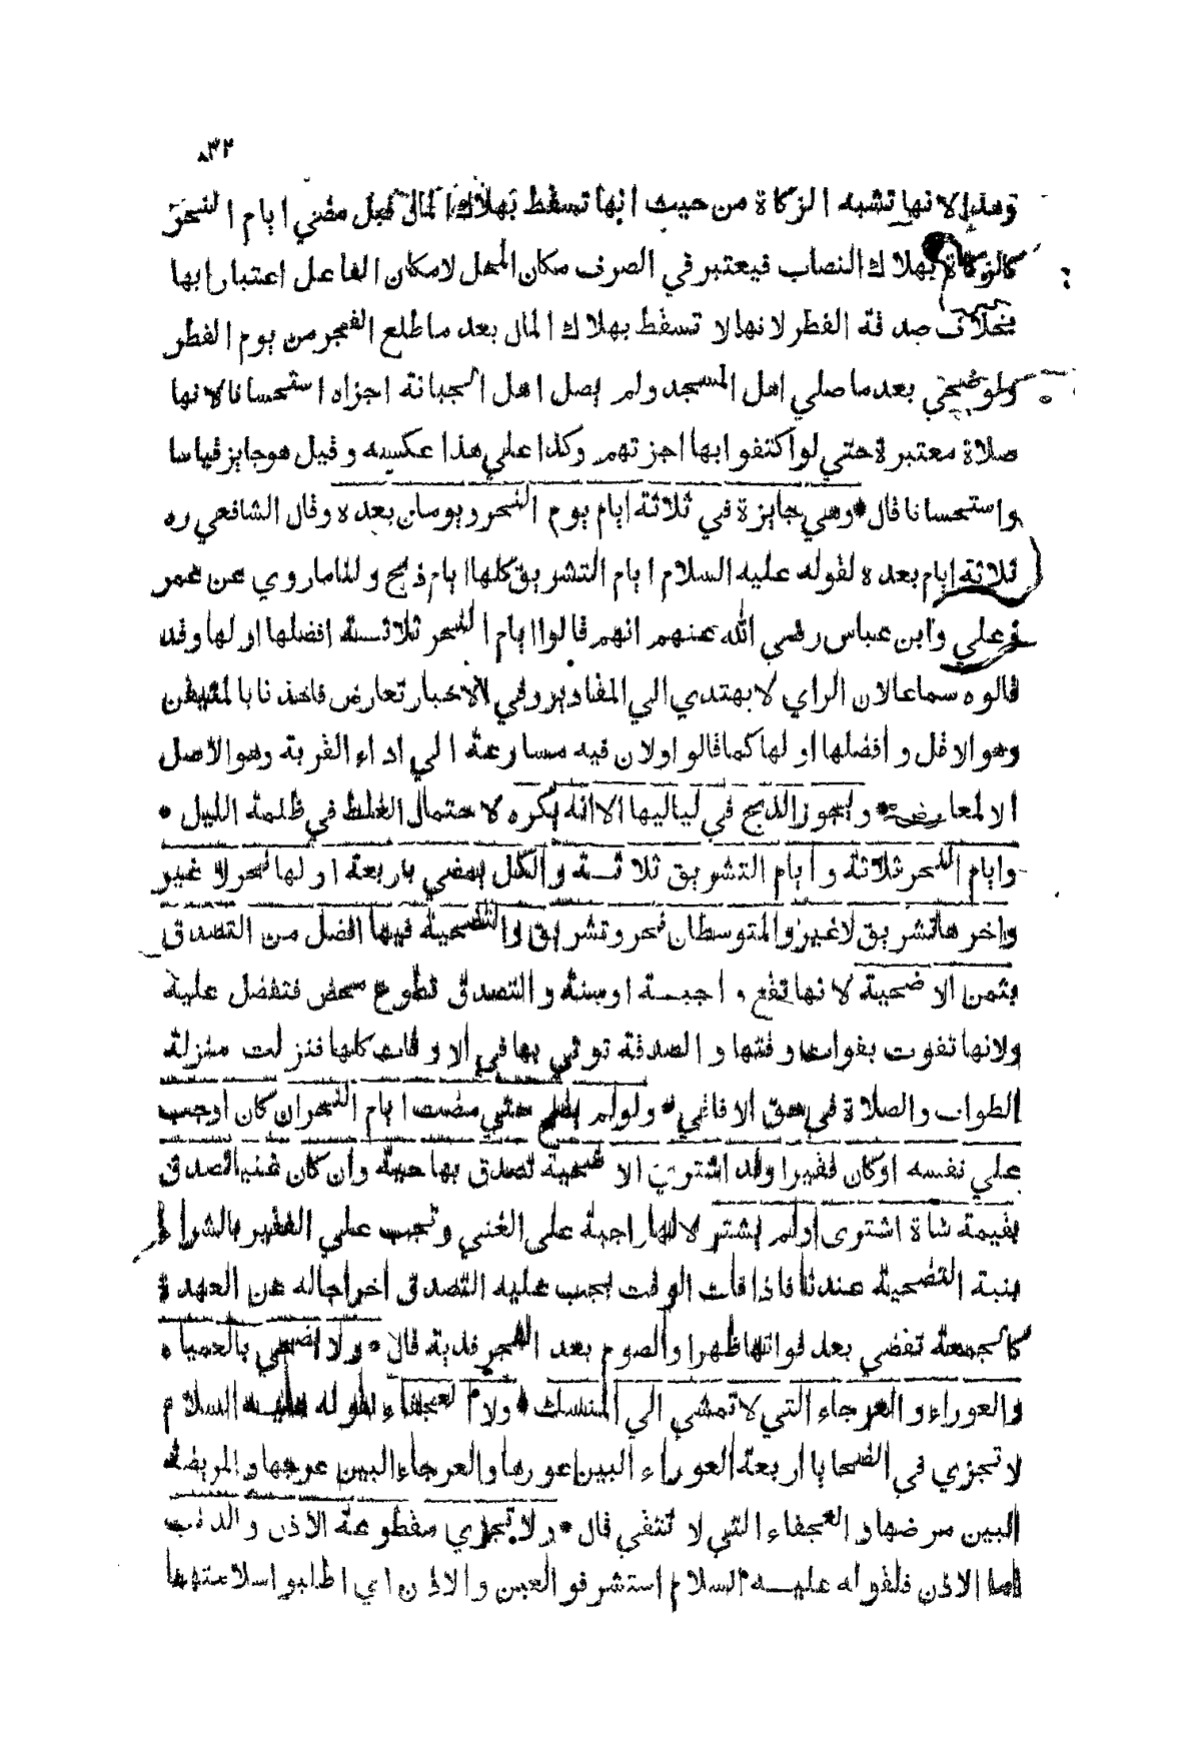 ٨٣٢
وهذا لانها تشبه الزكاة من حيث انها تسقط بهلاك المال قبل مضي ايام النحر
كالزكاة بهلاك النصاب فيعتبر في الصرف مكان المحل لا مكان الفاعل اعتبارا بها
بخلاف صدقة الفطر لانها لا تسقط بهلاك المال بعد ما طلع الفجر من يوم الفطر
ولو ضحي بعد ما صلي اهل المسجد ولم يصل اهل الجبانة اجزاه استحسانا لانها
صلاة معتبرة حتي لو اكتفوا بها اجزتهم وكذا علي هذا عكسه وقيل هو جايز قياسا
واستحسانا قال * وهي جايزة في ثلاثة ايام يوم النحر ويومان بعده وقال الشافعي ره
ثلاثة ايام بعده لقوله عليه السلام ايام التشريق كلها ايام ذبح ولنا ما روي عن عمر
وعلي وابن عباس رضي الله عنهم انهم قالوا ايام النحر ثلاثة افضلها اولها وقد
قالوه سماعا لان الراي لا يهتدي الي المقادير وفي الاخبار تعارض فاخذنا بالمتيقن
وهو الاقل وافضلها اولها كما قالوا ولان فيه مسارعة الي اداء القربة وهو الاصل
الا لمعارض * ويجوز الذبح في لياليها الا انه يكره لاحتمال الغلط في ظلمة الليل *
وايام النحر ثلاثة وايام التشريق ثلاثة والكل يمضي باربعة اولها نحر لا غير
واخرها تشريق لا غير والمتوسطان نحر وتشريق والتضحية فيها افضل من التصدق
بثمن الاضحية لانها تقع واجبة او سنة والتصدق تطوع محض فتفضل عليه
ولانها تفوت بفوات وقتها والصدقة توتي بها في الاوقات كلها فنزلت منزلة
الطواف والصلاة في حق الافاقي * ولو لم يضح حتي مضت ايام النحر ان كان اوجب
علي نفسه اوكان فقيرا وقد اشتري الاضحية تصدق بها حية وان كان غنيا تصدق
بقيمة شاة اشترى اولم يشتر لانها واجبة على الغني وتجب علي الفقير بالشراء
بنية التضحية عندنا فاذا فات الوقت يجب عليه التصدق اخراجا له عن العهدة
كالجمعة تقضي بعد فواتها ظهرا والصوم بعد العجز فدية قال * ولا يضحي بالعمياء
والعوراء والعرجاء التي لا تمشي الي المنسك * ولا العجفاء لقوله عليه السلام
لا تجزي في الضحايا اربعة العوراء البين عورها والعرجاء البين عرجها والمريضة
البين مرضها والعجفاء التي لا تنقي قال * ولا تجزي مقطوعة الاذن والذنب
اما الاذن فلقوله عليه السلام استشرفوا العين والاذن اي اطلبوا سلامتهما